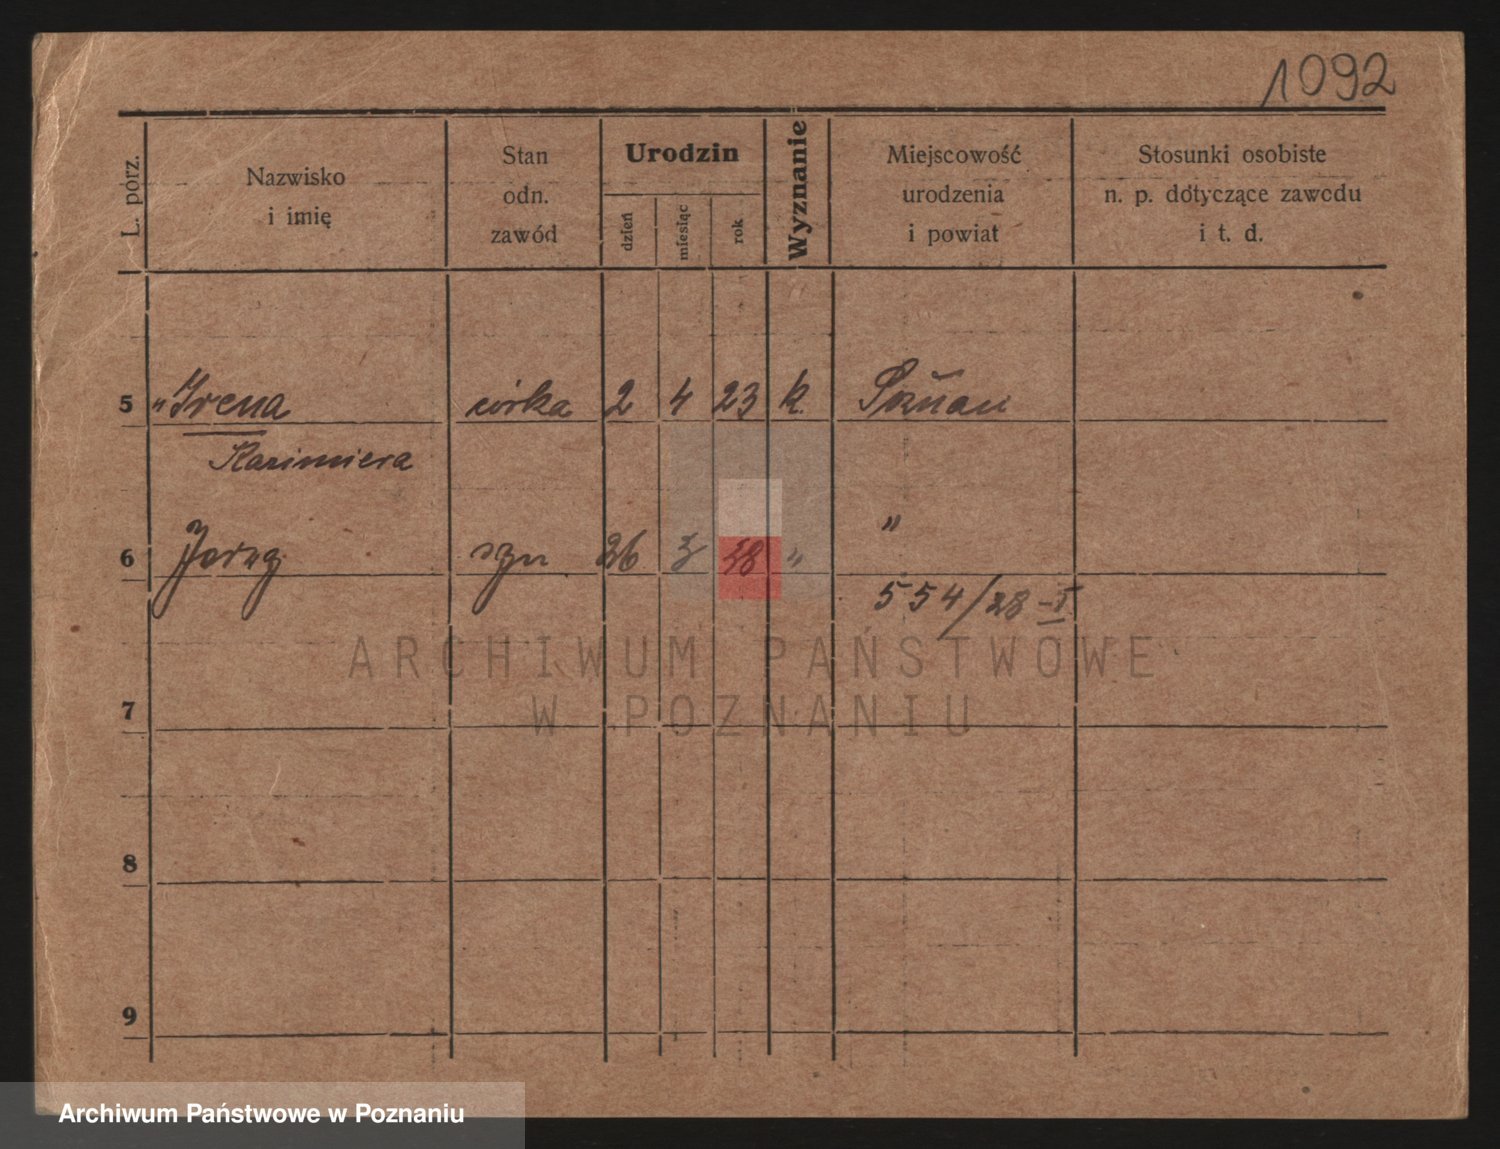 1092
L. porz.
Nazwisko
i imię
Stan
odn.
zawód
Urodzin
dzień
miesiąc
rok
Wyznanie
Miejscowość
urodzenia
i powiat
Stosunki osobiste
n. p. dotyczące zawodu
i t. d.
5 " Irena córka 2 4 23 k. Poznań
Kazimiera
6 Jerzy syn 26 3 28 " "
554/28 - I
7
8
9
ARCHIWUM PAŃSTWOWE
W POZNANIU
Archiwum Państwowe w Poznaniu